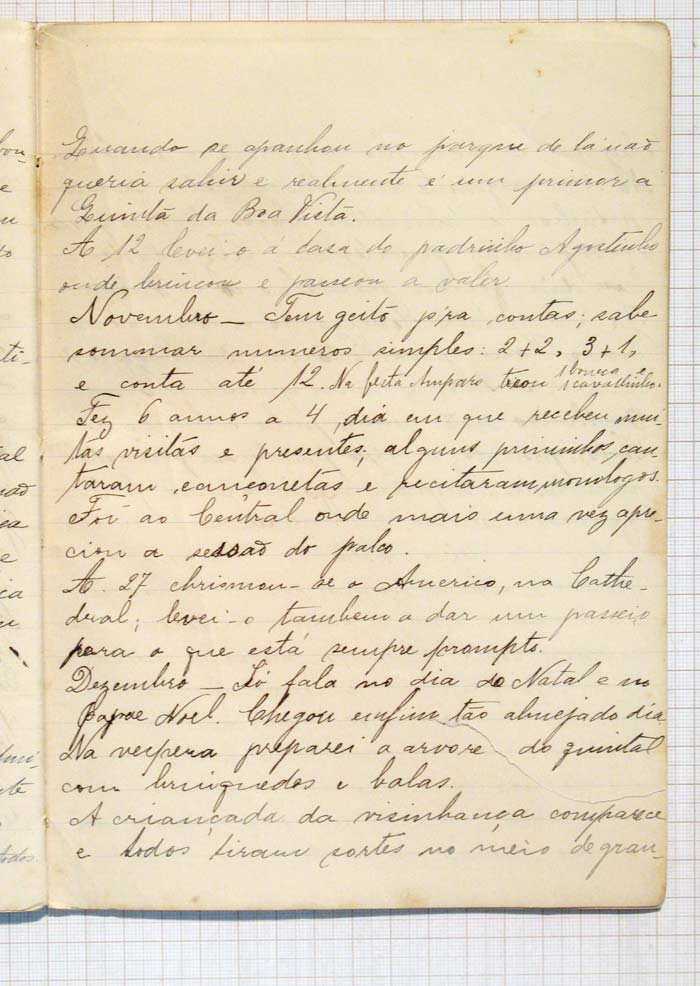 Quando se apanhou no parque de lá não
queria sahir e realmente é um primor a
Quinta da Boa Vista.
A 12 levei-o á casa do padrinho Agostinho
onde brincou e passeou a valer.
Novembro – Tem geito p'ra contas; sabe
sommar numeros simples: 2+2, 3+1,
e conta até 12. Na festa Amparo tirou 1 boneca e
1 cavallinho.
Fez 6 annos a 4, dia em que recebeu mui-
tas visitas e presentes; alguns priminhos can-
taram cançonetas e recitaram monologos.
Foi ao Central onde mais uma vez apre-
ciou a sessão do palco.
A 27 chrismou-se o Americo, na Cathe-
dral; levei-o tambem a dar um passeio
para o que está sempre prompto.
Dezembro – Só fala no dia de Natal e no
Papae Noel. Chegou emfim tão almejado dia.
Na vespera preparei a arvore do quintal
com brinquedos e balas.
A criançada da visinhança comparece
e todos tiram sortes no meio de gran-